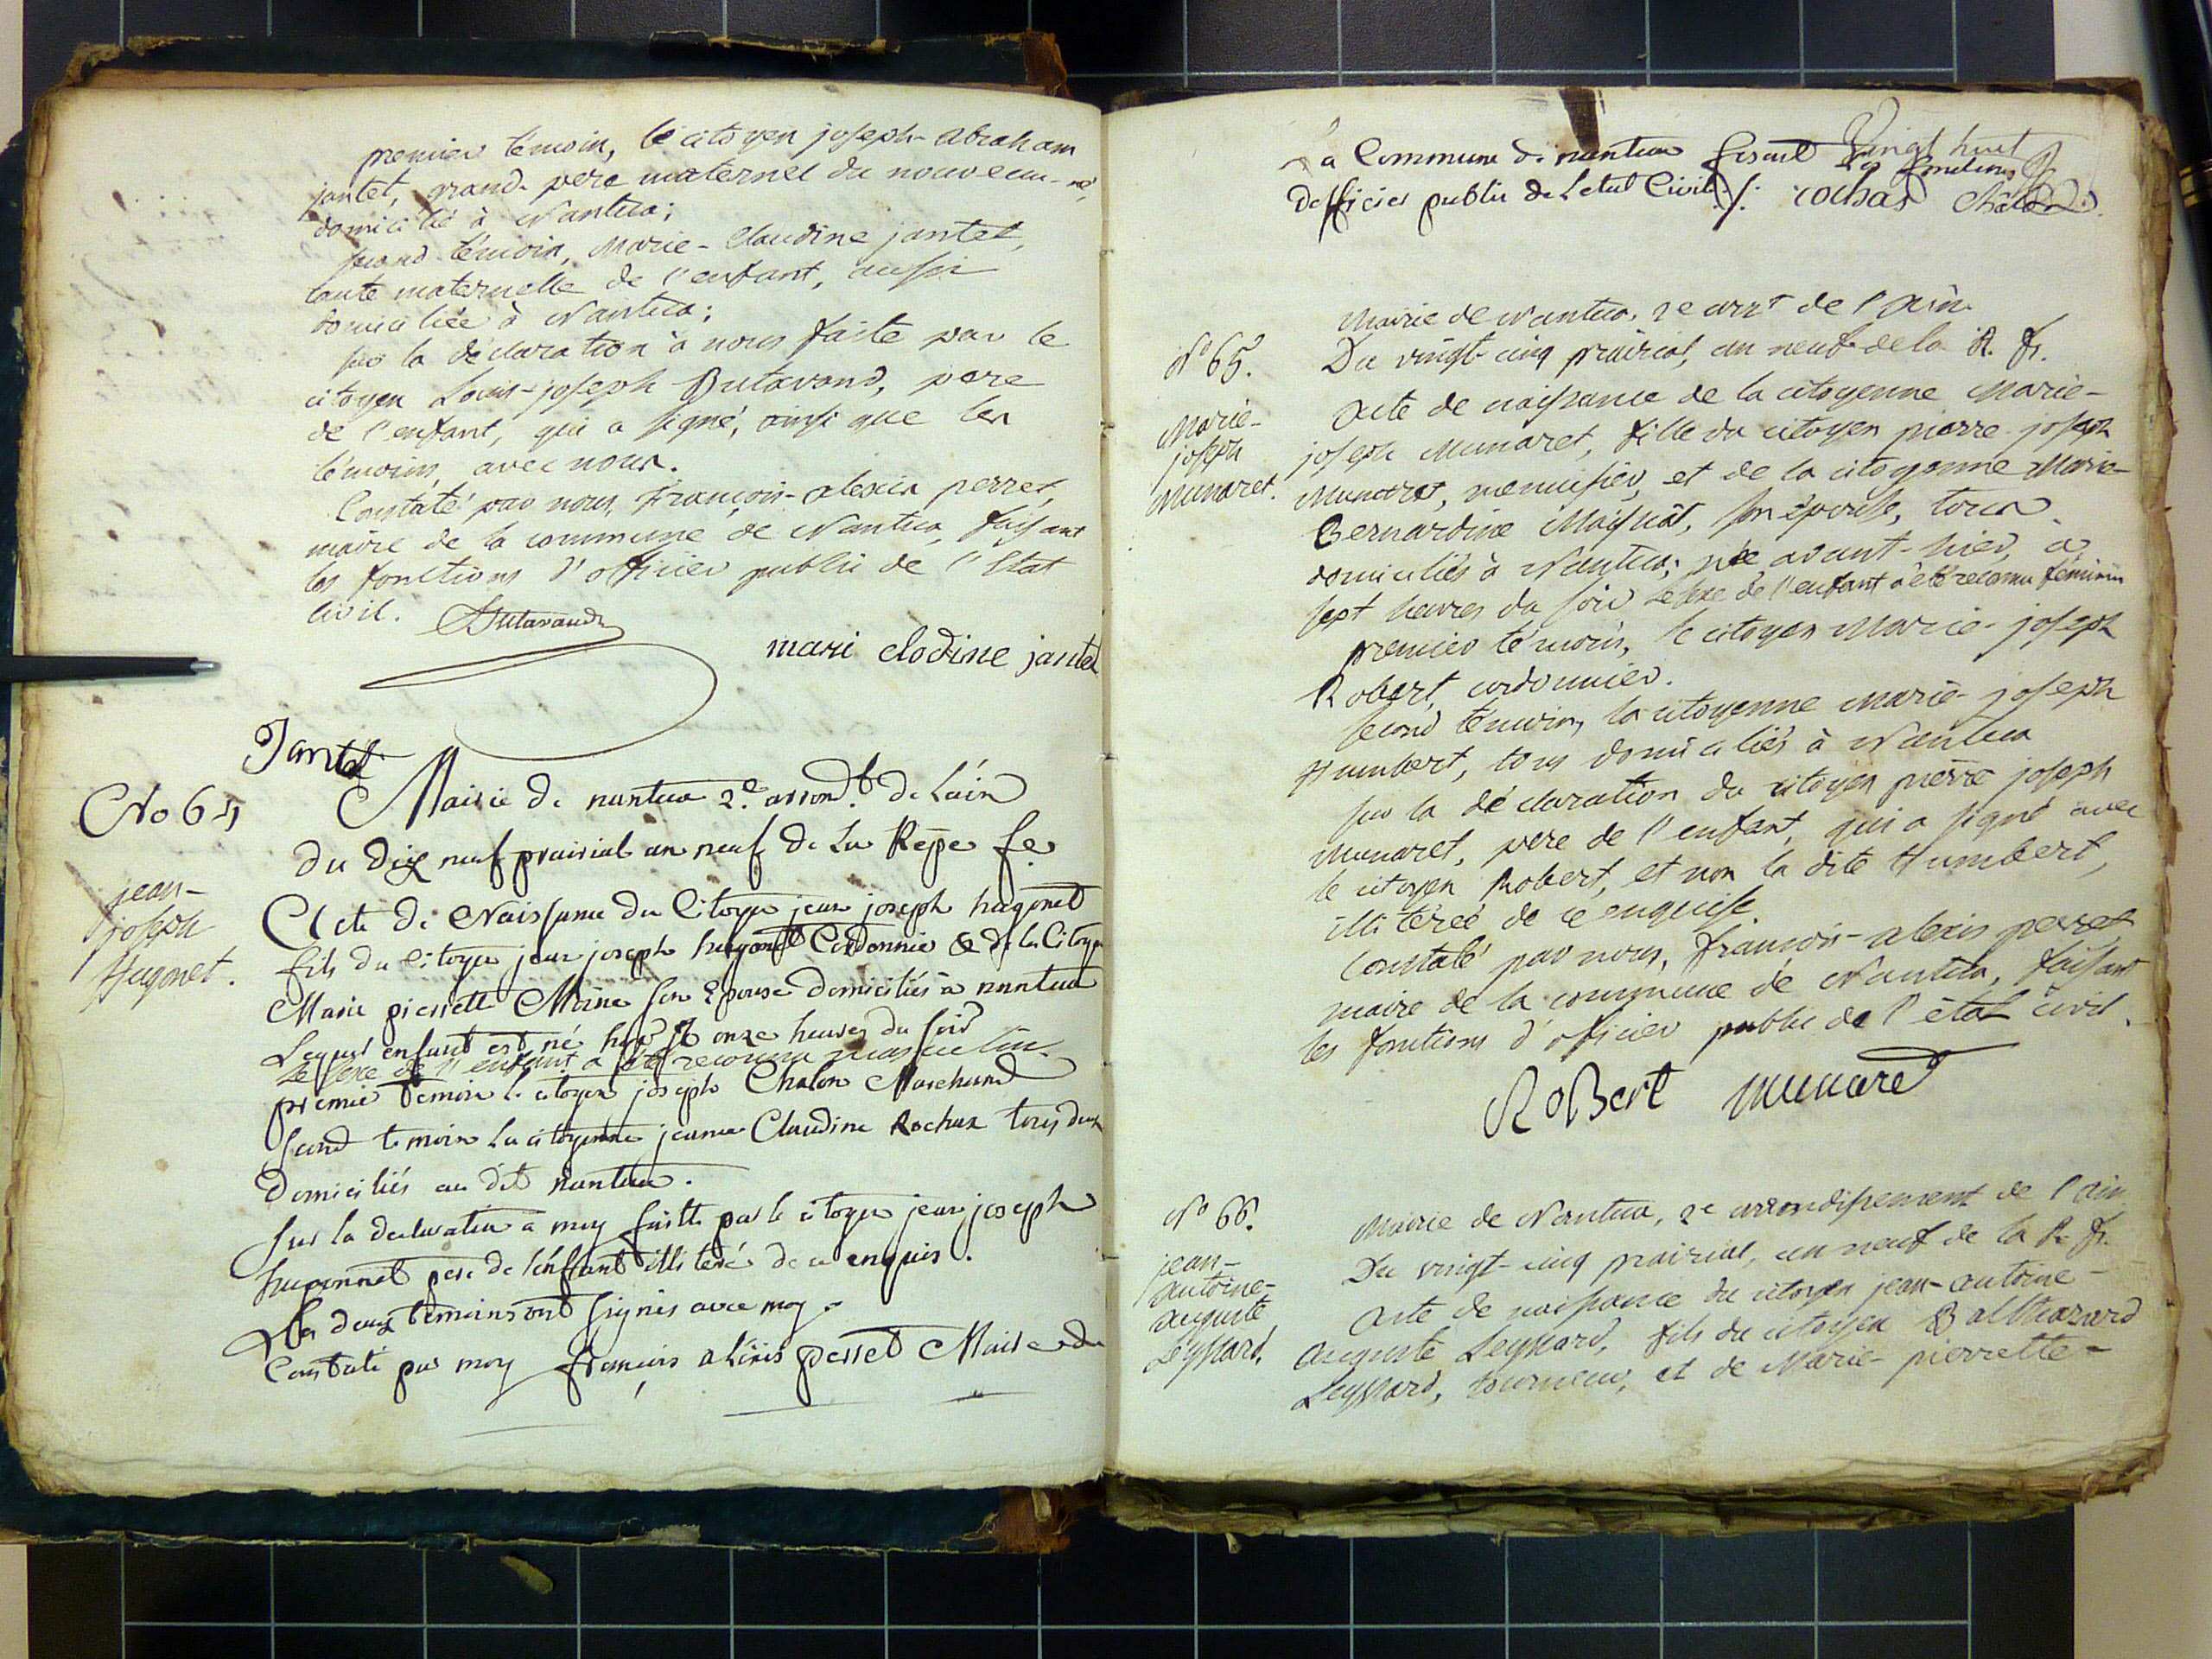 premier témoin, le citoyen joseph-abraham
jantet, grand-pere maternel du nouveau-né,
domicilié à Nantua;
second témoin, Marie-Claudine jantet,
tante maternelle de l'enfant, aussi
domiciliée à Nantua;
sur la déclaration à nous faite par le
citoyen Louis-joseph Butavand, pere
de l'enfant, qui a signé, ainsi que les
témoins, avec nous.
Constaté par nous, François-alexis perret,
maire de la commune de Nantua, faisant
les fonctions d'officier public de l'Etat
civil. Butavand
mari clodine jantet
Jantet
No 64
jean-
joseph
Hugonet.
Mairie de nantua 2e. arrondt. de L'ain
du dix neuf prairial an neuf de La Repe fe
Acte de Naissance du Citoyen jean joseph hugonet
fils du Citoyen jean joseph hugonet Cordonnie & de la Citoye
Marie pierrette Moine son Epouse domiciliés à nantua
Lequel enfant est né hier à onze heures du soir
Le sexe de l'enfant a été reconnu masculin.
premie temoin le citoyen joseph Chalon Marchand
second temoin La citoyenne jeanne Claudine Rochas tous deux
domiciliés au dit nantua.
sur la declaration a moy faitte par le citoyen jean joseph
hugonnet pere de l'enffant illiteré de ce enquis.
Les deux temoins ont signés avec moy.
Constaté par moy françois alexis perret Maire de
Vingt huit
la Commune de nantua fesant les fonctions
d'officier public de Letat Civil ./. rochas Chalon
No 65.
Marie-
joseph
Munaret.
Mairie de Nantua, 2e arrt de l'Ain.
Du vingt-cinq prairial, an neuf de la R. fr.
Acte de naissance de la citoyenne Marie-
joseph Munaret, fille du citoyen pierre-joseph
Munaret, menuisier, et de la citoyenne Marie-
Bernardine Maissiat, son épouse, tous
domiciliés à Nantua; née avant-hier, à
sept heures du soir. Le sexe de l'enfant a été reconnu féminin
premier témoin, le citoyen Marie-joseph
Robert, cordonnier.
second témoin, la citoyenne Marie-joseph
Humbert, tous domiciliés à Nantua
sur la déclaration du citoyen pierre joseph
Munaret, pere de l'enfant, qui a signé avec
le citoyen Robert, et non la dite Humbert,
illitérée de ce enquise.
Constaté par nous, françois-alexis perret
maire de la commune de Nantua, faisant
les fonctions d'officier public de l'état civil.
RoBert munaret
No 66.
jean-
antoine-
auguste
Leyssard.
Mairie de Nantua, 2e arrondissement de l'ain
Du vingt-cinq prairial, an neuf de la R. fr.
Acte de naissance du citoyen jean-antoine-
auguste Leyssard, fils du citoyen Balthazard
Leyssard, tourneur, et de Marie-pierrette-